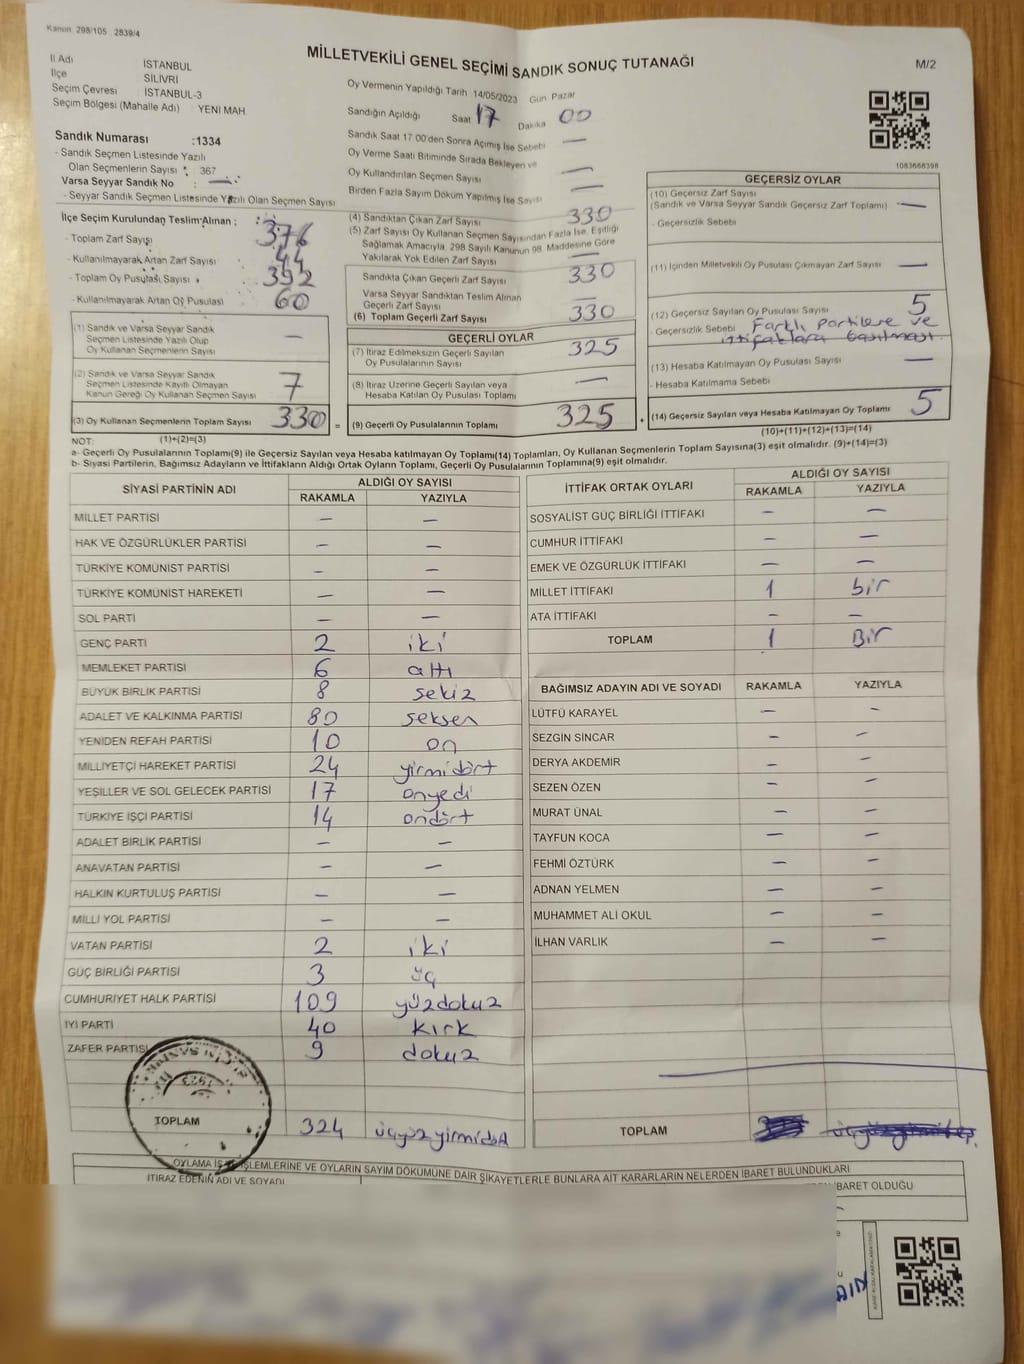 Kanun. 298/105 2839/4
MİLLETVEKİLİ GENEL SEÇİMİ SANDIK SONUÇ TUTANAĞI
M/2
İl Adı İSTANBUL
İlçe SİLİVRİ
Seçim Çevresi İSTANBUL-3
Seçim Bölgesi (Mahalle Adı) YENİ MAH
Sandık Numarası :1334
- Sandık Seçmen Listesinde Yazılı
Olan Seçmenlerin Sayısı : 367
Varsa Seyyar Sandık No : —
- Seyyar Sandık Seçmen Listesinde Yazılı Olan Seçmen Sayısı
İlçe Seçim Kurulundan Teslim Alınan ;
- Toplam Zarf Sayısı : 376
- Kullanılmayarak Artan Zarf Sayısı : 44
- Toplam Oy Pusulası Sayısı : 392
- Kullanılmayarak Artan Oy Pusulası 60
(1) Sandık ve Varsa Seyyar Sandık
Seçmen Listesinde Yazılı Olup
Oy Kullanan Seçmenlerin Sayısı —
(2) Sandık ve Varsa Seyyar Sandık
Seçmen Listesinde Kayıtlı Olmayan
Kanun Gereği Oy Kullanan Seçmen Sayısı 7
(3) Oy Kullanan Seçmenlerin Toplam Sayısı 330 =
(1)+(2)=(3)
Oy Vermenin Yapıldığı Tarih 14/05/2023 Gün Pazar
Sandığın Açıldığı Saat 17 Dakika 00
Sandık Saat 17:00'den Sonra Açılmış İse Sebebi —
Oy Verme Saati Bitiminde Sırada Bekleyen ve
Oy Kullandırılan Seçmen Sayısı —
Birden Fazla Sayım Döküm Yapılmış İse Sayısı —
(4) Sandıktan Çıkan Zarf Sayısı 330
(5) Zarf Sayısı Oy Kullanan Seçmen Sayısından Fazla İse, Eşitliği
Sağlamak Amacıyla, 298 Sayılı Kanunun 98. Maddesine Göre
Yakılarak Yok Edilen Zarf Sayısı —
Sandıkta Çıkan Geçerli Zarf Sayısı 330
Varsa Seyyar Sandıktan Teslim Alınan
Geçerli Zarf Sayısı —
(6) Toplam Geçerli Zarf Sayısı 330
GEÇERLİ OYLAR
(7) İtiraz Edilmeksizin Geçerli Sayılan
Oy Pusulalarının Sayısı 325
(8) İtiraz Üzerine Geçerli Sayılan veya
Hesaba Katılan Oy Pusulası Toplamı —
(9) Geçerli Oy Pusulalarının Toplamı 325 +
1083668398
GEÇERSİZ OYLAR
(10) Geçersiz Zarf Sayısı
(Sandık ve Varsa Seyyar Sandık Geçersiz Zarf Toplamı) —
- Geçersizlik Sebebi
(11) İçinden Milletvekili Oy Pusulası Çıkmayan Zarf Sayısı —
(12) Geçersiz Sayılan Oy Pusulası Sayısı 5
- Geçersizlik Sebebi Farklı partilere ve
ittifaklara basılması.
(13) Hesaba Katılmayan Oy Pusulası Sayısı —
- Hesaba Katılmama Sebebi
(14) Geçersiz Sayılan veya Hesaba Katılmayan Oy Toplamı 5
(10)+(11)+(12)+(13)=(14)
NOT:
a- Geçerli Oy Pusulalarının Toplamı(9) ile Geçersiz Sayılan veya Hesaba katılmayan Oy Toplamı(14) Toplamları, Oy Kullanan Seçmenlerin Toplam Sayısına(3) eşit olmalıdır. (9)+(14)=(3)
b- Siyasi Partilerin, Bağımsız Adayların ve İttifakların Aldığı Ortak Oyların Toplamı, Geçerli Oy Pusulalarının Toplamına(9) eşit olmalıdır.
SİYASİ PARTİNİN ADI ALDIĞI OY SAYISI
RAKAMLA YAZIYLA
MİLLET PARTİSİ — —
HAK VE ÖZGÜRLÜKLER PARTİSİ — —
TÜRKİYE KOMÜNİST PARTİSİ — —
TÜRKİYE KOMÜNİST HAREKETİ — —
SOL PARTİ — —
GENÇ PARTİ 2 iki
MEMLEKET PARTİSİ 6 altı
BÜYÜK BİRLİK PARTİSİ 8 sekiz
ADALET VE KALKINMA PARTİSİ 80 seksen
YENİDEN REFAH PARTİSİ 10 on
MİLLİYETÇİ HAREKET PARTİSİ 24 yirmidört
YEŞİLLER VE SOL GELECEK PARTİSİ 17 onyedi
TÜRKİYE İŞÇİ PARTİSİ 14 ondört
ADALET BİRLİK PARTİSİ — —
ANAVATAN PARTİSİ — —
HALKIN KURTULUŞ PARTİSİ — —
MİLLİ YOL PARTİSİ — —
VATAN PARTİSİ 2 iki
GÜÇ BİRLİĞİ PARTİSİ 3 üç
CUMHURİYET HALK PARTİSİ 109 yüzdokuz
İYİ PARTİ 40 kırk
ZAFER PARTİSİ 9 dokuz
TOPLAM 324 üçyüzyirmidört
İTTİFAK ORTAK OYLARI ALDIĞI OY SAYISI
RAKAMLA YAZIYLA
SOSYALİST GÜÇ BİRLİĞİ İTTİFAKI — —
CUMHUR İTTİFAKI — —
EMEK VE ÖZGÜRLÜK İTTİFAKI — —
MİLLET İTTİFAKI 1 bir
ATA İTTİFAKI — —
TOPLAM 1 Bir
BAĞIMSIZ ADAYIN ADI VE SOYADI RAKAMLA YAZIYLA
LÜTFÜ KARAYEL — —
SEZGİN SİNCAR — —
DERYA AKDEMİR — —
SEZEN ÖZEN — —
MURAT ÜNAL — —
TAYFUN KOCA — —
FEHMİ ÖZTÜRK — —
ADNAN YELMEN — —
MUHAMMET ALİ OKUL — —
İLHAN VARLIK — —
TOPLAM
OYLAMA İŞLEMLERİNE VE OYLARIN SAYIM DÖKÜMÜNE DAİR ŞİKAYETLERLE BUNLARA AİT KARARLARIN NELERDEN İBARET BULUNDUKLARI
İTİRAZ EDENİN ADI VE SOYADI
İBARET OLDUĞU